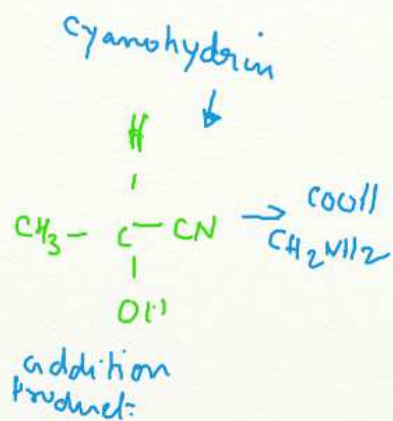 Cyanohydrin
H
CH3 - C - CN → COOH
CH2NH2
OH
addition
Product: